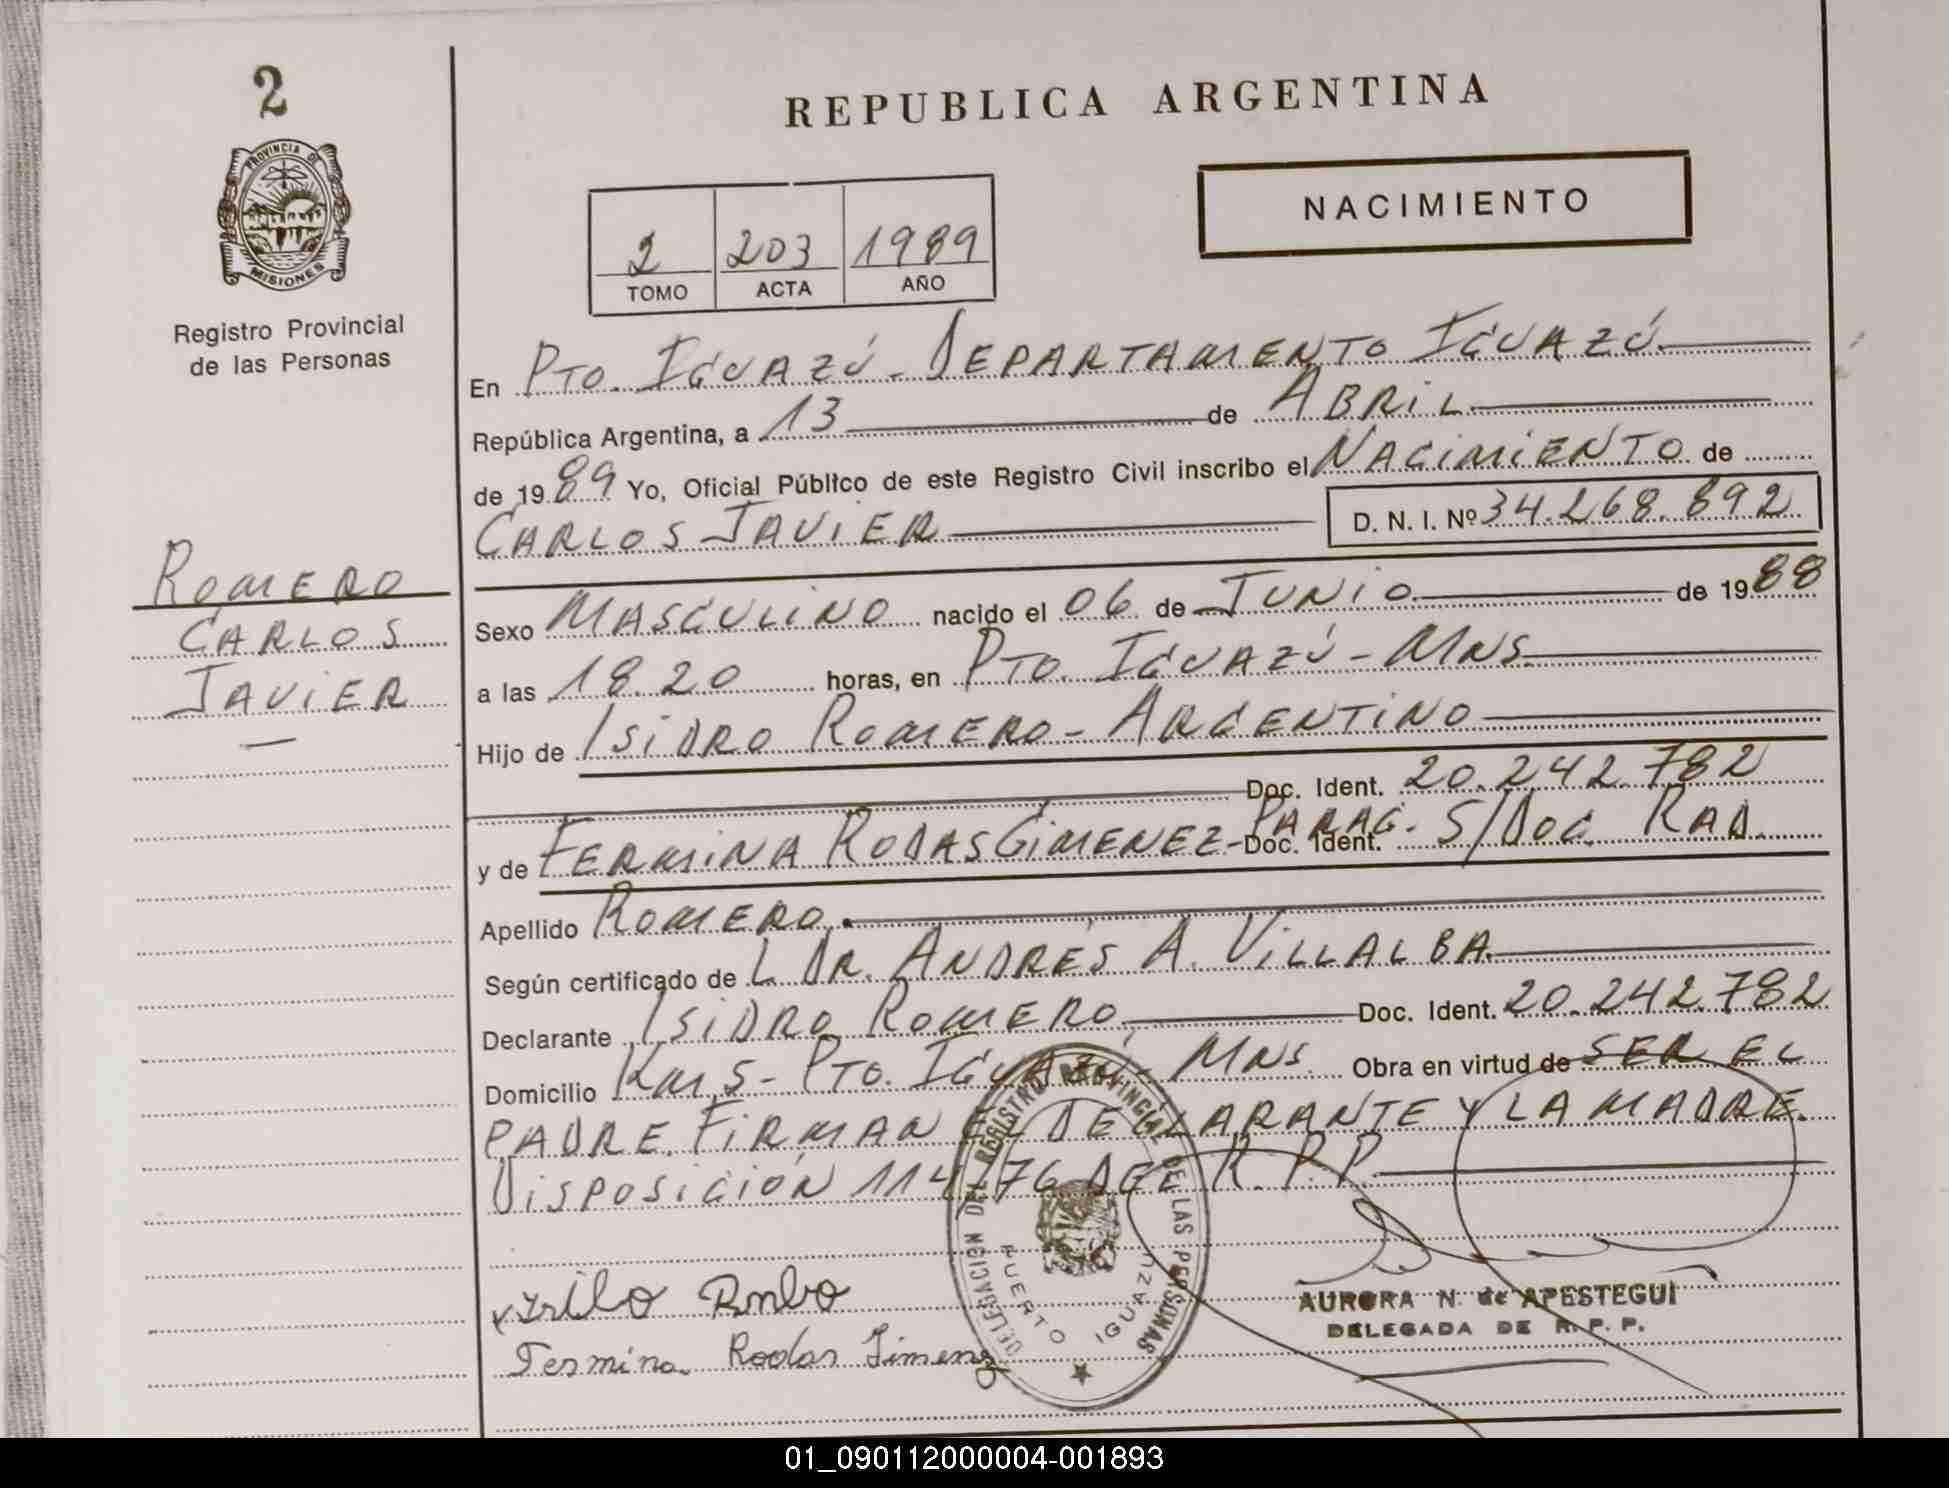 2
PROVINCIA DE
MISIONES
Registro Provincial
de las Personas
ROMERO
CARLOS
JAVIER
REPUBLICA ARGENTINA
NACIMIENTO
2 203 1989
TOMO ACTA AÑO
En PTO. IGUAZÚ - DEPARTAMENTO IGUAZÚ
República Argentina, a 13 de ABRIL
de 1989 Yo, Oficial Público de este Registro Civil inscribo el NACIMIENTO de
CARLOS JAVIER D. N. I. Nº 34.268.892
Sexo MASCULINO nacido el 06 de JUNIO de 1988
a las 18.20 horas, en PTO. IGUAZÚ - MNS.
Hijo de ISIDRO ROMERO - ARGENTINO
Doc. Ident. 20.242.782
y de FERMINA RODAS GIMENEZ - PARAG. Doc. Ident. S/DOC. RAD.
Apellido ROMERO.
Según certificado de L DR. ANDRÉS A. VILLALBA
Declarante ISIDRO ROMERO Doc. Ident. 20.242.782
Domicilio KM, 5 - PTO. IGUAZÚ - MNS. Obra en virtud de SER EL
PADRE. FIRMAN EL DECLARANTE Y LA MADRE.
DISPOSICIÓN 114/76 DEL R.P.P.
DELEGACION DEL REGISTRO PROVINCIAL DE LAS PERSONAS
PUERTO IGUAZU
Fermina Rodas Jimenez
AURORA N. de APESTEGUI
DELEGADA DE R. P. P.
01_090112000004-001893